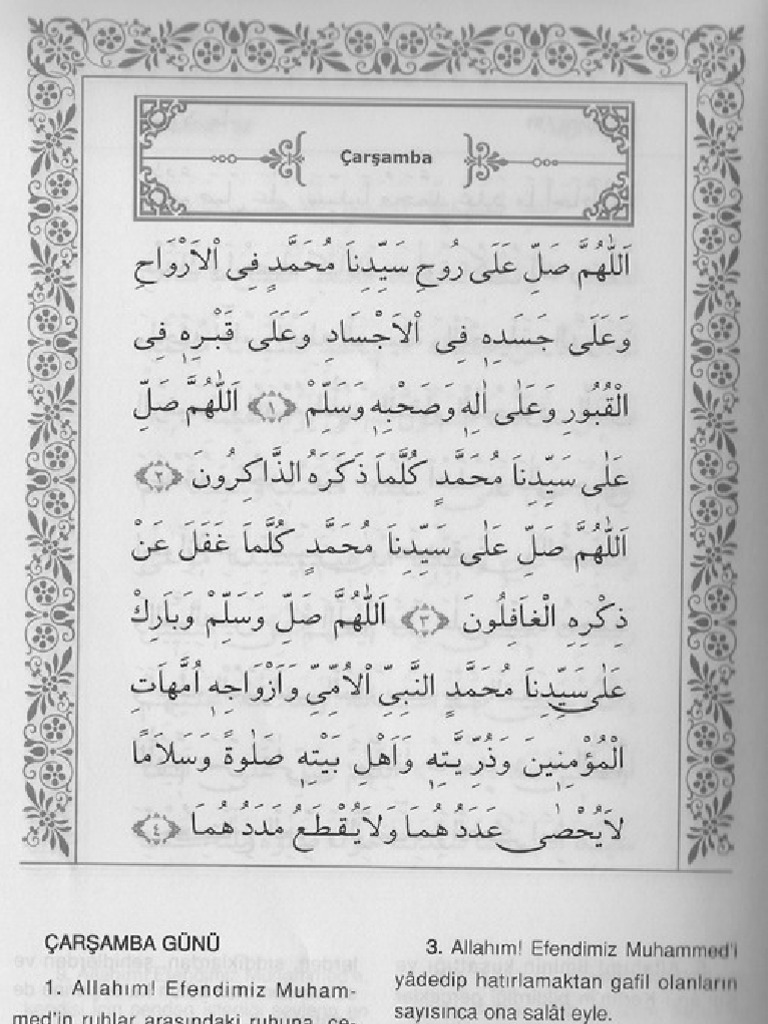 Çarşamba
اَللّٰهُمَّ صَلِّ عَلَى رُوحِ سَيِّدِنَا مُحَمَّدٍ فِى الْاَرْوَاحِ
وَعَلَى جَسَدِهِ فِى الْاَجْسَادِ وَعَلَى قَبْرِهِ فِى
الْقُبُورِ وَعَلٰى اٰلِهِ وَصَحْبِهِ وَسَلِّمْ ﴿١﴾ اَللّٰهُمَّ صَلِّ
عَلٰى سَيِّدِنَا مُحَمَّدٍ كُلَّمَا ذَكَرَهُ الذَّاكِرُونَ ﴿٢﴾
اَللّٰهُمَّ صَلِّ عَلٰى سَيِّدِنَا مُحَمَّدٍ كُلَّمَا غَفَلَ عَنْ
ذِكْرِهِ الْغَافِلُونَ ﴿٣﴾ اَللّٰهُمَّ صَلِّ وَسَلِّمْ وَبَارِكْ
عَلٰى سَيِّدِنَا مُحَمَّدٍ النَّبِىِّ الْاُمِّىِّ وَاَزْوَاجِهِ اُمَّهَاتِ
الْمُؤْمِنِينَ وَذُرِّيَّتِهِ وَاَهْلِ بَيْتِهِ صَلٰوةً وَسَلَامًا
لَا يُحْصٰى عَدَدُهُمَا وَلَا يُقْطَعُ مَدَدُهُمَا ﴿٤﴾
ÇARŞAMBA GÜNÜ
1. Allahım! Efendimiz Muham-
med'in ruhlar arasındaki ruhuna, ce-
3. Allahım! Efendimiz Muhammed'i
yâdedip hatırlamaktan gafil olanların
sayısınca ona salât eyle.